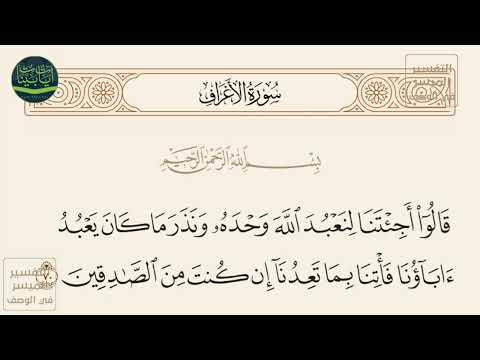 آيات بينات
التفسير
الميسر
في الوصف
سُورَةُ الأَعْرَافِ
بِسْمِ ٱللَّهِ ٱلرَّحْمَٰنِ ٱلرَّحِيمِ
قَالُوٓا۟ أَجِئْتَنَا لِنَعْبُدَ ٱللَّهَ وَحْدَهُۥ وَنَذَرَ مَا كَانَ يَعْبُدُ
ءَابَآؤُنَا فَأْتِنَا بِمَا تَعِدُنَآ إِن كُنتَ مِنَ ٱلصَّٰدِقِينَ
التفسير
الميسر
في الوصف